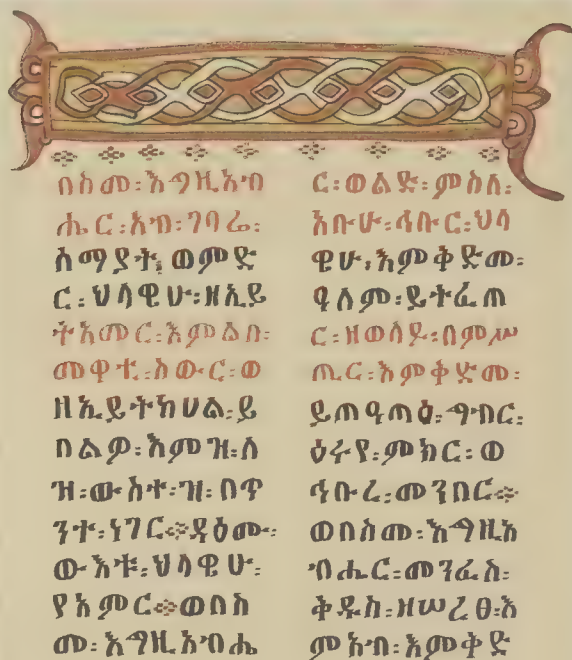 በስመ፡እግዚአብ
ሔር፡አብ፡ገባሬ፡
ሰማያት፡ወምድ
ር፡ህላዌሁ፡ዘኢይ
ትአምር፡እምልበ፡
መዋቲ፡ስውር፡ወ
ዘኢይትከሀል፡ይ
በልዎ፡እምዝ፡ለ
ዝ፡ውስተ፡ዝ፡በጥ
ንተ፡ነገር፨ዳዕሙ፡
ውእቱ፡ህላዌሁ፡
የአምር፨ወበስ
መ፡እግዚአብሔ
ር፡ወልድ፡ምስለ፡
አቡሁ፡ኅቡር፡ህላ
ዌሁ፡እምቅድመ፡
ዓለም፡ይትፈጠ
ር፡ዘወለዶ፡በምሥ
ጢር፡እምቅድመ፡
ይጠዓጣዕ፡ግብር፡
ዕሩየ፡ምክር፡ወ
ኅቡረ፡መንበር፨
ወበስመ፡እግዚአ
ብሔር፡መንፈስ፡
ቅዱስ፡ዘሠረፀ፡እ
ምአብ፡እምቅድ